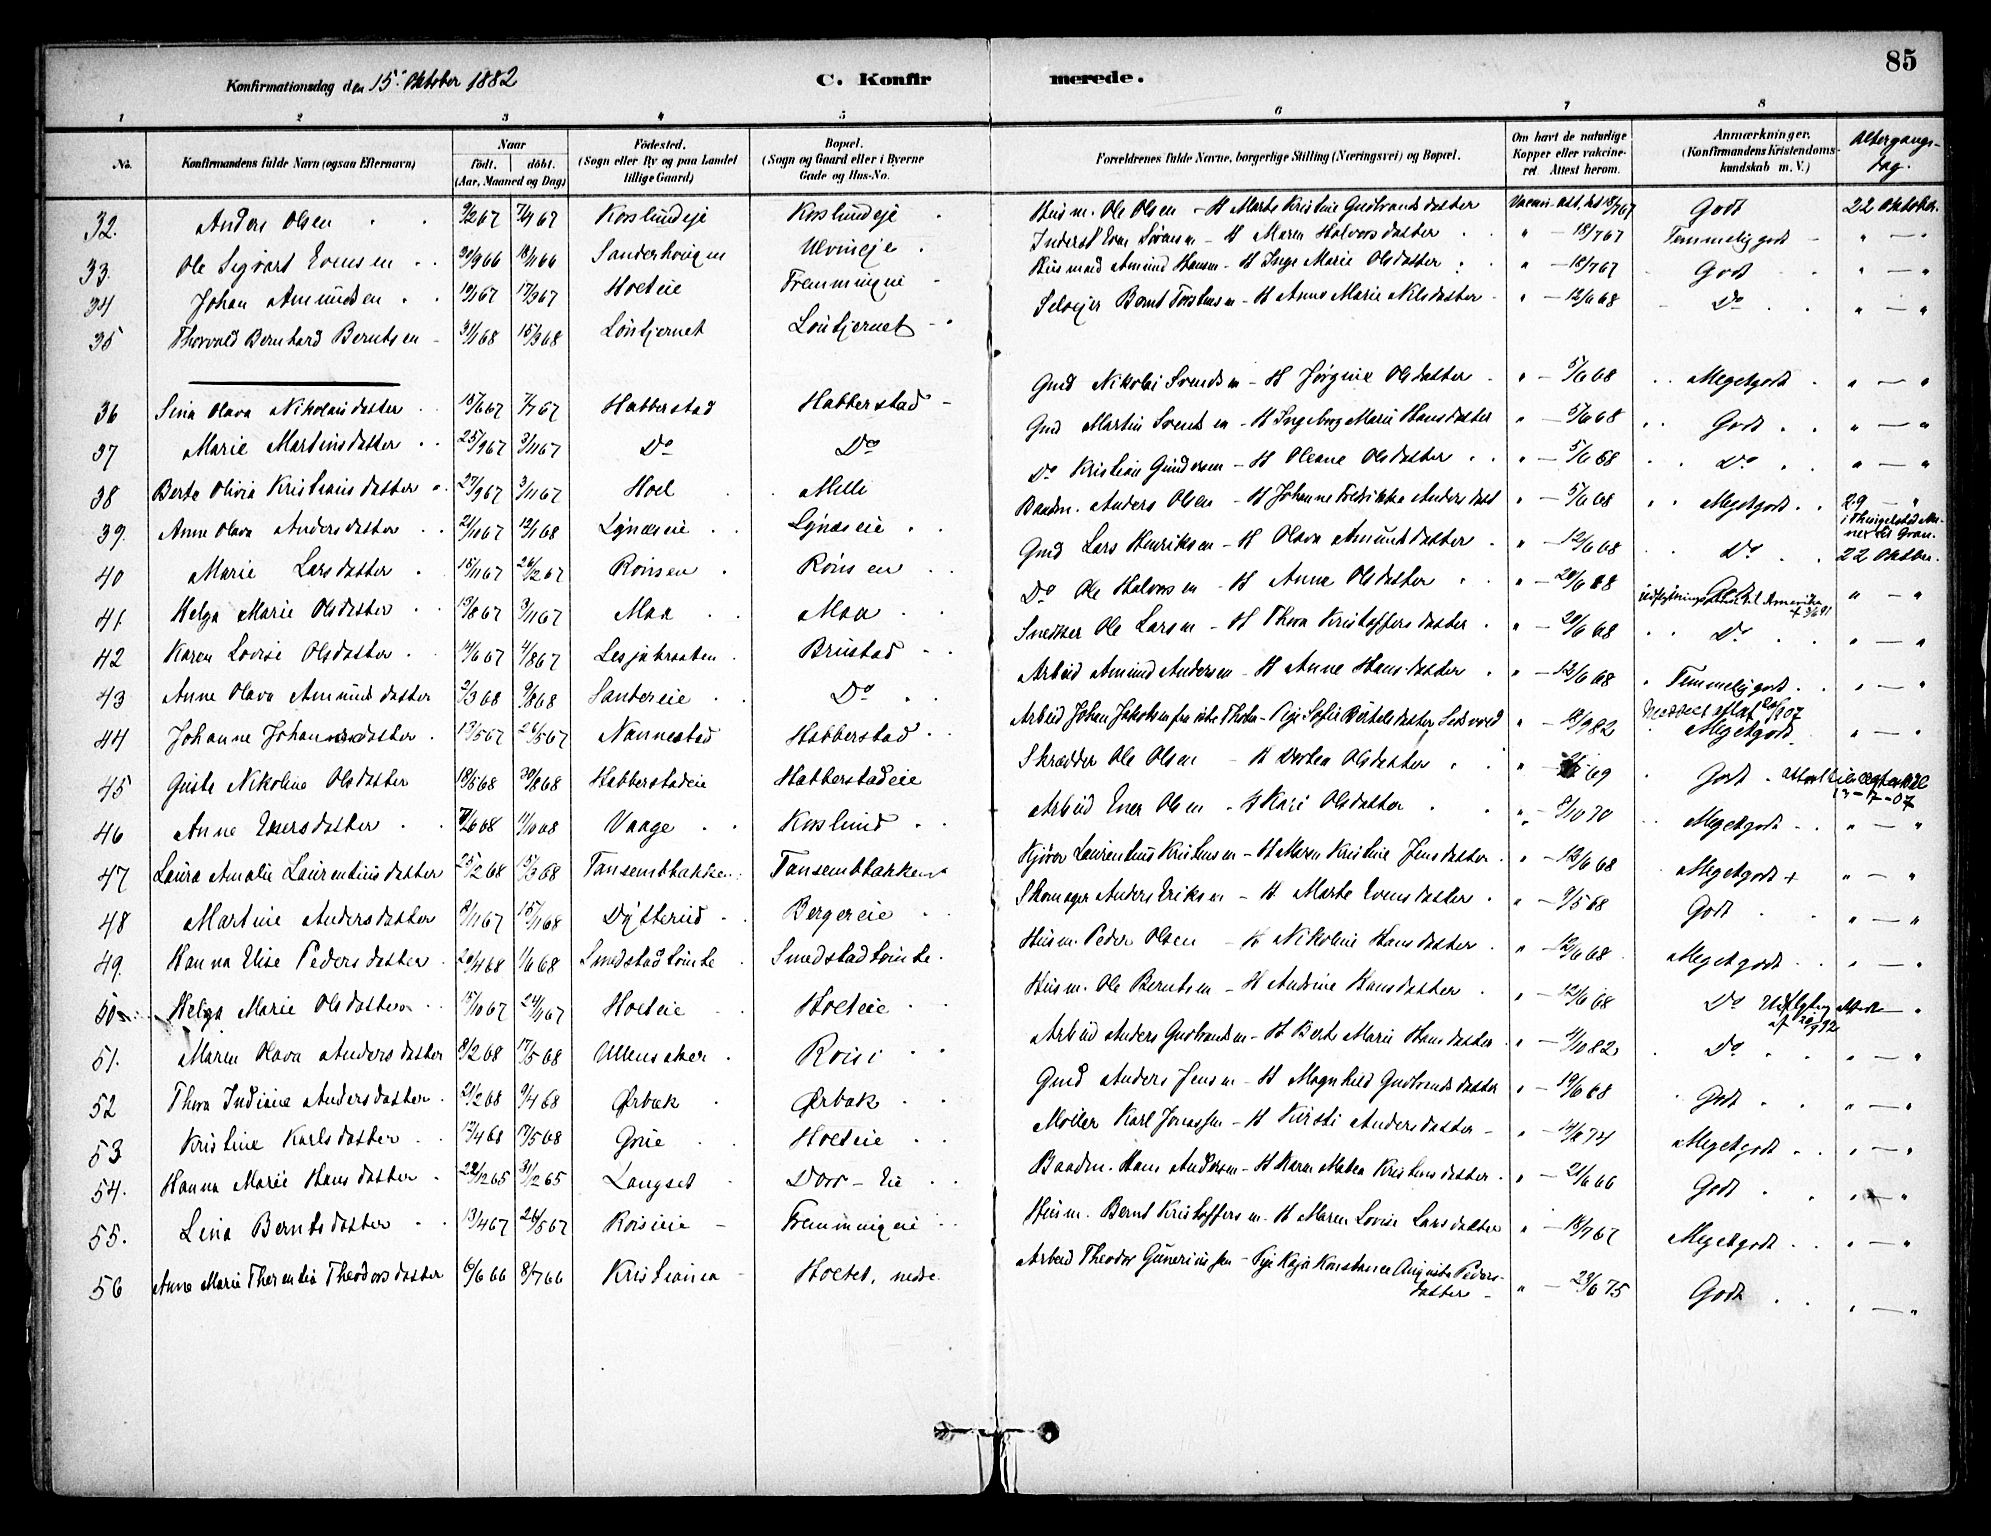 85
Konfirmationsdag den 15. Oktober 1882 C. Konfirmerede.
1 2 3 4 5 6 7 8
No. Konfirmandens fulde Navn (ogsaa Efternavn) Naar født. døbt. (Aar, Maaned og Dag) Fødested. (Sogn eller By og paa Landet tillige Gaard) Bopæl. (Sogn og Gaard eller i Byerne Gade og Hus-No. Forældrenes fulde Navne, borgerlige Stilling (Næringsvei) og Bopæl. Om havt de naturlige Kopper eller vaccineret. Attest herom. Anmærkninger. (Konfirmandens Kristendomskundskab m. V.) Altergangsdag.
32. Anders Olsen 7/4 67 Koslundeje Koslundeje Husm. Ole Olsen – H Marte Kristine Gudbrandsdatter 18/7 67 Godt 22 Oktober.
33. Ole Sigvart Evensen 30/9 66 18/11 66 Ulvineje Inderst Even Sørensen – H Maren Halvorsdatter " – 18/7 67 Temmelig godt " – "
34 Johan Amundsen 17/3 67 Hoeleie Fremmingeie Husmand Amund Hansen – H Inge Marie Olsdatter " – 18/7 67 Godt " – "
35 Thorvald Bernhard Berntsen 31/1 68 15/3 68 Løntjernet Løntjernet Selvejer Bernt Torstensen – H Anne Marie Nilsdatter " – 12/6 68 Do " – "
36 Sina Olava Nikolaisdatter 7/7 67 Habberstad Habberstad Gmd Nikolai Svendsen – H Jørgine Olsdatter " – 5/6 68 Megetgodt " – "
37 Marie Martinsdatter 25/9 67 3/11 67 Do Do Gmd Martin Svendsen – H Ingeborg Marie Hansdatter " – 5/6 68 Godt " – "
38 Berte Olivia Kristiansdatter 27/9 67 3/11 67 Hoel Melli Do Kristian Gundersen – H Oleane Olsdatter " – 5/6 68 Do " – "
39. Anne Olava Andersdatter 21/11 67 12/1 68 Lynæseie Lynæseie Baadm. Anders Olsen – H Johanne Fredrikke Andersdat " – 5/6 68 Megetgodt 29 – " i Thingelstad Annex til Gran.
40 Marie Larsdatter 15/11 67 26/12 67 Rønsen Rønsen Gmd Lars Henriksen – H Olava Amundsdatter " – 12/6 68 Do 22 Oktober.
41. Helga Marie Olsdatter 3/11 67 Maa Maa Do Ole Halvorsen – H Anne Olsdatter " – 20/6 68 " – "
42 Karen Lovise Olsdatter 4/8 67 Lesjabraaten Brustad Snedker Ole Larsen – H Thora Kristoffersdatter " – 20/6 68 Do " – "
43 Anne Olava Amundsdatter 2/3 68 Santereie Do Arbeid Amund Andersen – H Anne Hansdatter " – 12/6 68 Temmelig godt " – "
44 Johanne Johannesdatter 17/5 67 26/5 67 Nannestad Habberstad Arbeid Johan Jakobsen – Pige Sofie Bertelsdatter, Eidsvold " – 18/9 82 Megetgodt " – "
45 Guste Nikoline Olsdatter 18/5 68 Habberstadeie Habberstadeie Skrædder Ole Olsen – H Dorthea Olsdatter 69 Godt 13-12-07
46 Anne Enersdatter Vaage Koslund Arbeid Ener Olsen – H Kari Olsdatter " – 9/10 70 Megetgodt " – "
47 Laura Amalie Laurentiusdatter 25/2 68 Tansembbakken Tansembbakken Kjører Laurentius Kristensen – H Maren Kristine Jensdatter " – 12/6 68 Megetgodt + " – "
48 Martine Andersdatter 8/11 67 Dytterud Bergereie Skomager Anders Eriksen – H Marte Evensdatter " – 9/5 68 Godt " – "
49. Hanna Elise Pedersdatter 20/4 68 1/6 68 Smedstadtomte Smedstadtomte Husm. Peder Olsen – H Nikoline Hansdatter " – 12/6 68 Megetgodt " – "
50 Helga Marie Olsdatter 15/10 67 24/11 67 Hoeleie Hoeleie Husm. Ole Berntsen – H Andrine Hansdatter " – 12/6 68 Do
51. Maren Olava Andersdatter 8/2 68 17/5 68 Ullensaker Roisi Arbeid Anders Gudbrandsen – H Berte Marie Hansdatter " – 4/10 82 Do " – "
52 Thora Indiane Andersdatter 21/2 68 9/4 68 Ørbæk Ørbæk Gmd Anders Jensen – H Magnhild Gudbrandsdatter " – 19/6 68 Godt " – "
53 Kristine Karlsdatter 12/4 68 17/5 68 Grue Hoeleie Møller Karl Jonassen – H Kirsti Andersdatter " – 14/6 74 Megetgodt " – "
54. Hanna Marie Hansdatter 31/12 65 Langset Dorr-Eie Baadm. Hans Andersen – H Karen Mathea Kristensdatter " – 21/6 66 Godt " – "
55. Lina Berntsdatter 13/4 67 26/5 67 Roisieie Fremmingeie Husm. Bernt Kristoffersen – H Maren Lovise Larsdatter " – 18/7 67 Megetgodt " – "
56 Anne Marie Therentia Theodorsdatter 6/6 66 8/7 66 Kristiania Hoelet, nedre. Arbeid Theodor Gunerius sen – Pige Kaja Konstance Augusta Pedersdatter – " – 23/6 75 Godt " – "